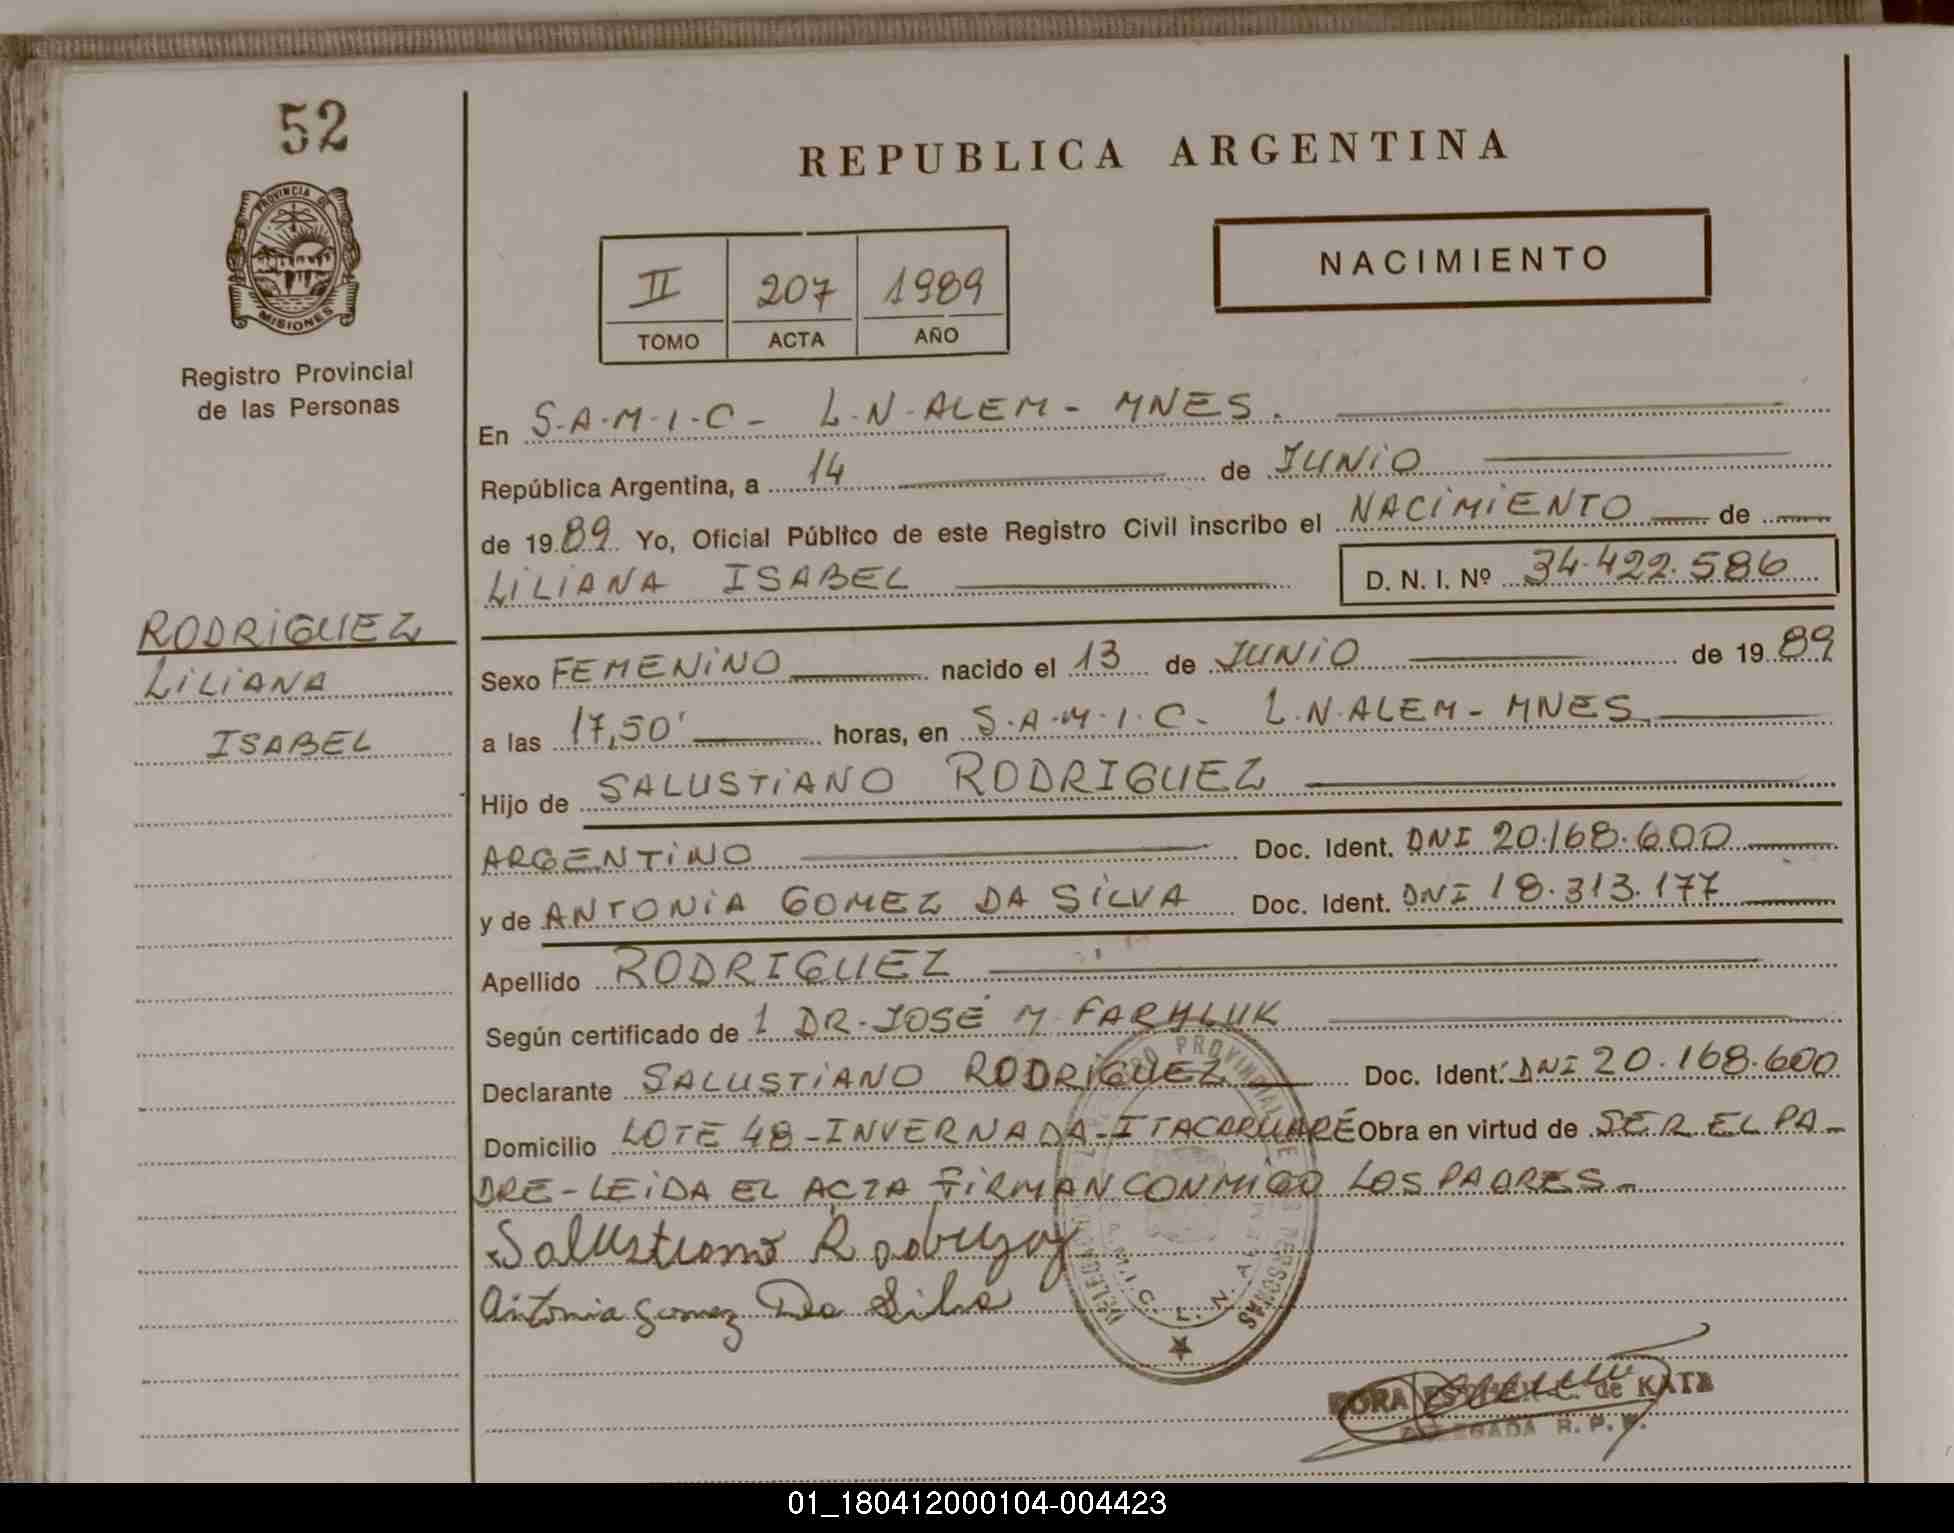 52
REPUBLICA ARGENTINA
PROVINCIA DE
MISIONES
Registro Provincial
de las Personas
II 207 1989
TOMO ACTA AÑO
NACIMIENTO
En S.A.M.I.C - L.N.ALEM - MNES.
República Argentina, a 14 de JUNIO
de 1989 Yo, Oficial Público de este Registro Civil inscribo el NACIMIENTO de
LILIANA ISABEL D. N. I. Nº 34.422.586
RODRIGUEZ
LILIANA
ISABEL
Sexo FEMENINO nacido el 13 de JUNIO de 1989
a las 17,50' horas, en S.A.M.I.C. L.N.ALEM - MNES
Hijo de SALUSTIANO RODRIGUEZ
ARGENTINO Doc. Ident. DNI 20.168.600
y de ANTONIA GOMEZ DA SILVA Doc. Ident. DNI 18.313.177
Apellido RODRIGUEZ
Según certificado de 1 DR. JOSÉ M FARHLUK
Declarante SALUSTIANO RODRIGUEZ Doc. Ident. DNI 20.168.600
Domicilio LOTE 48 - INVERNADA - ITACARUARÉ Obra en virtud de SER EL PA-
DRE - LEIDA EL ACTA FIRMAN CONMIGO LOS PADRES -
Salustiano Rodriguez
Antonia Gomez Da Silva
PROVINCIAL DE LAS PERSONAS
S.A.M.I.C. L. N.
de KATZ
DELEGADA R. P. P.
01_180412000104-004423